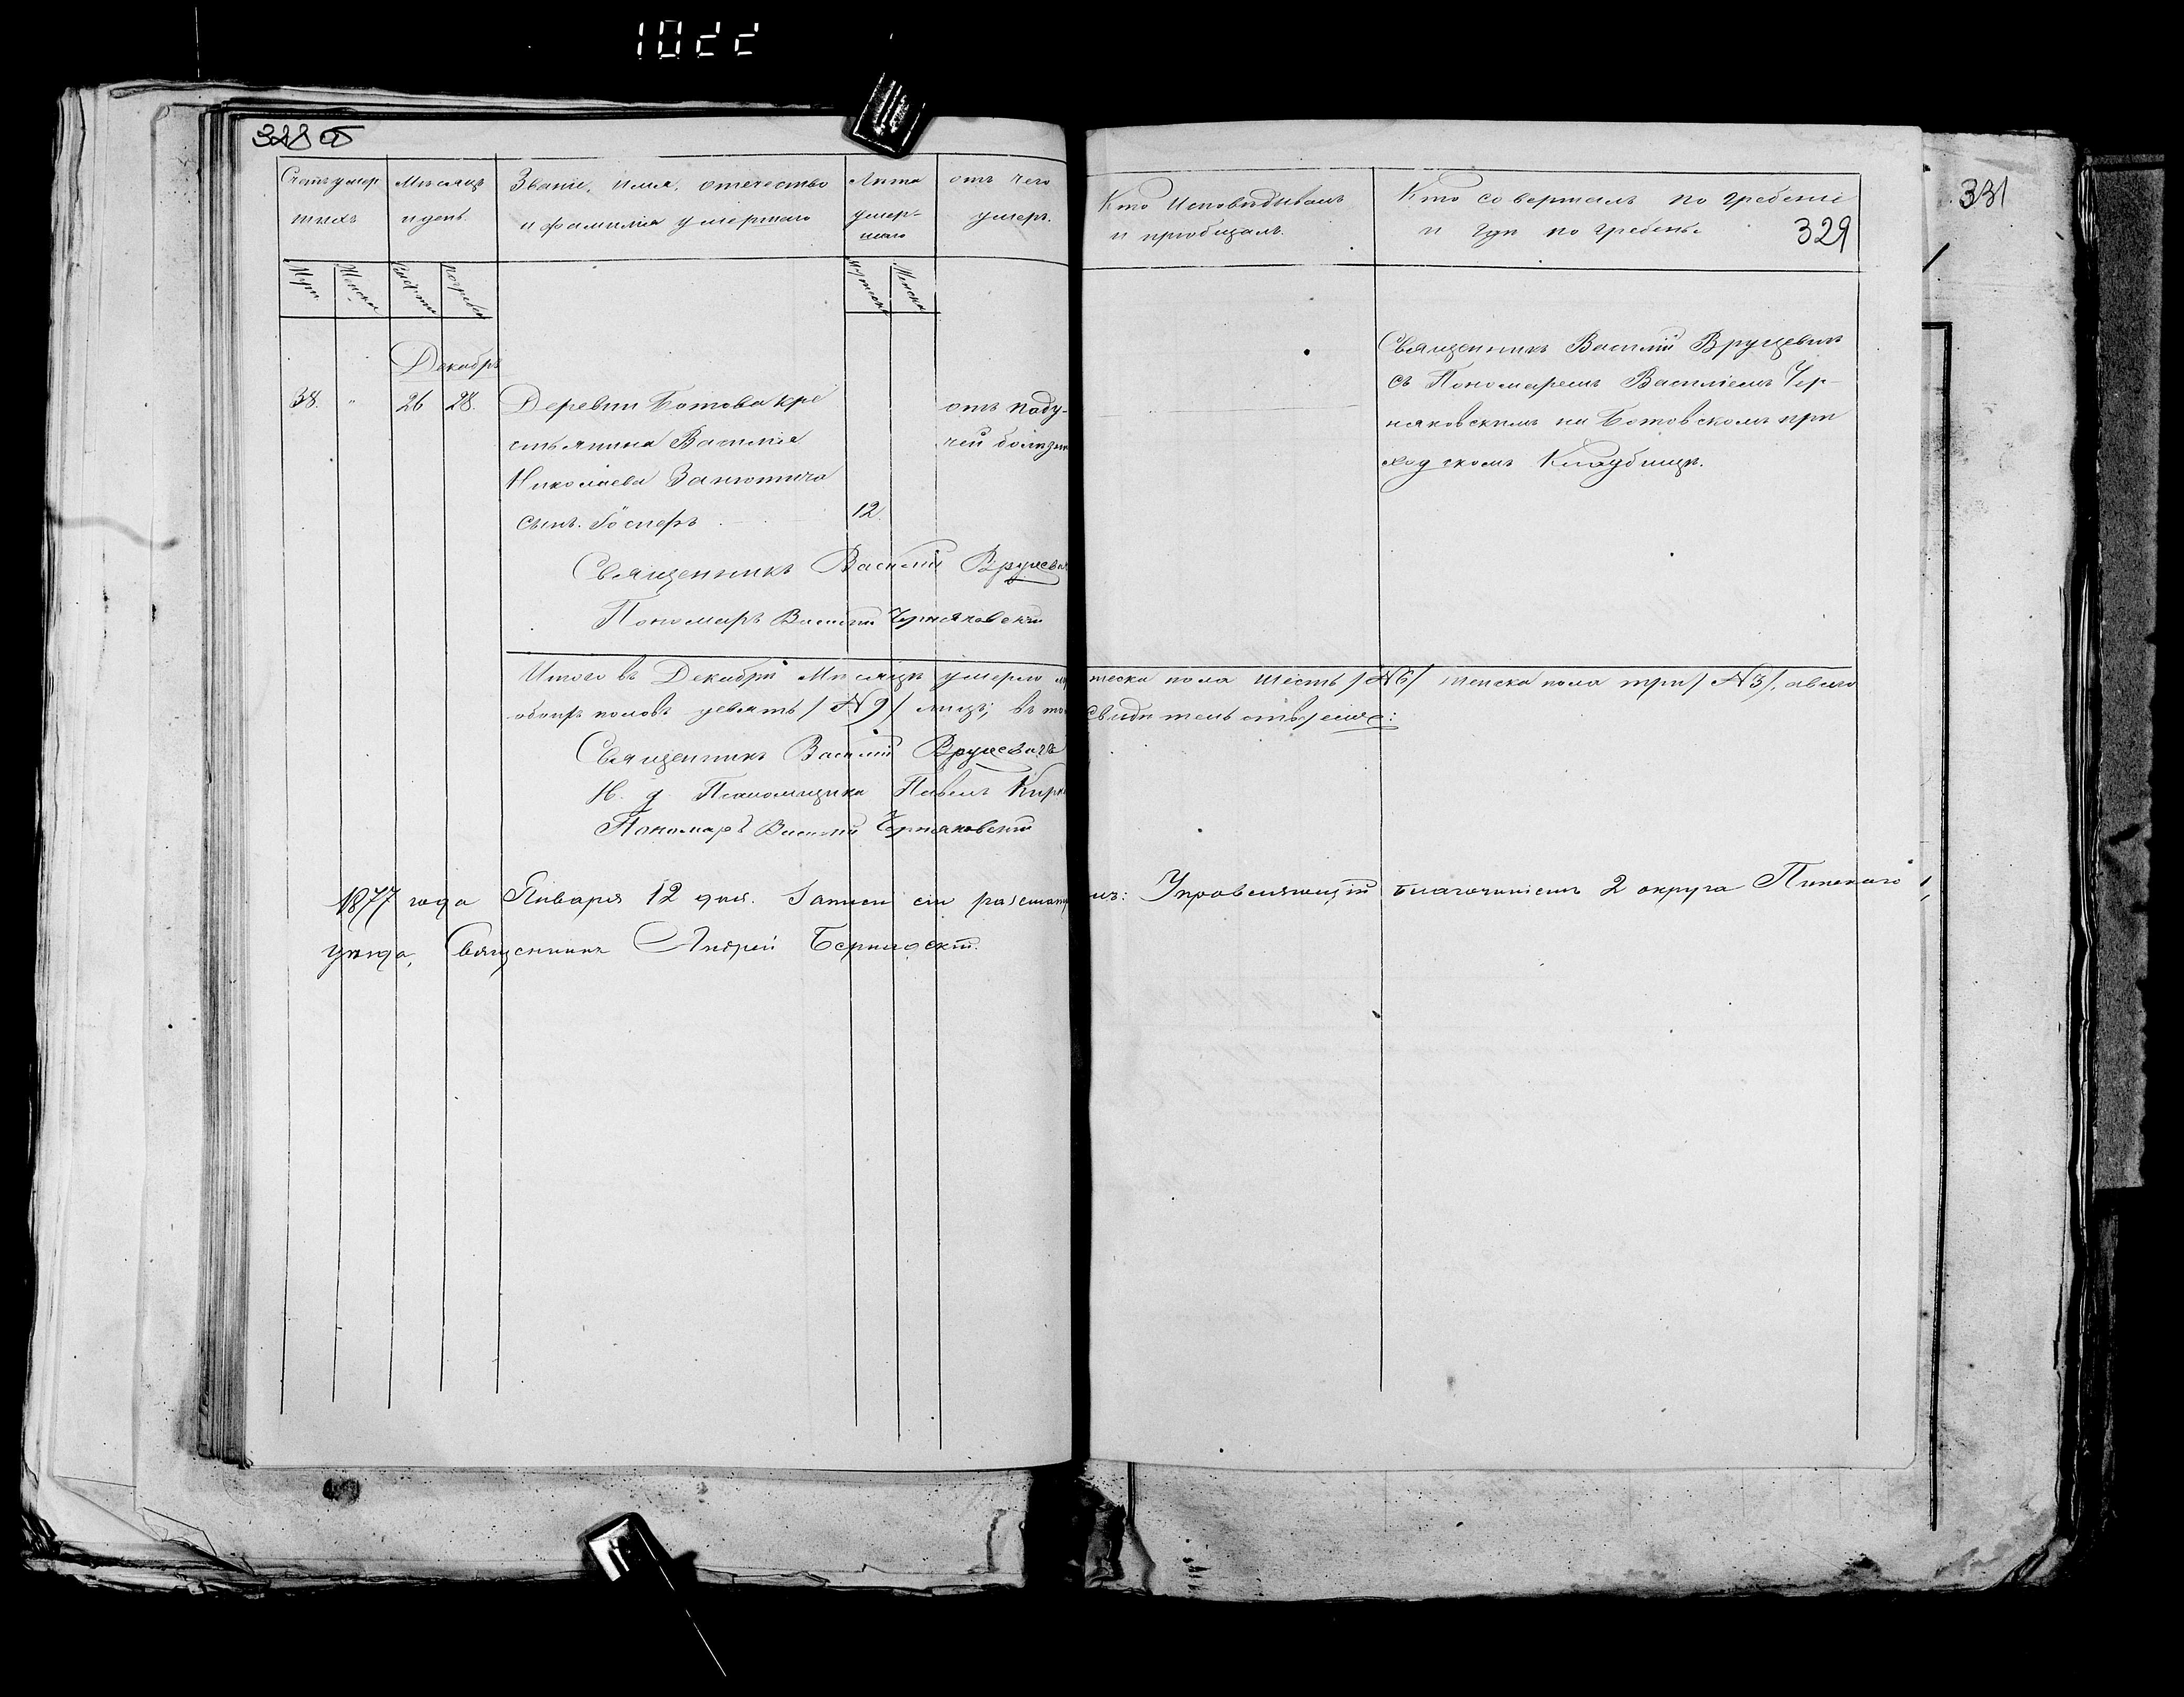 1022
328 об
331
Счетъ умер
шихъ
Мѣсяцъ
и день.
Званіе, имя, отечество
и фамилія умершаго
Лѣта
умер-
шаго
отъ чего
умеръ.
Кто исповѣдывалъ
и приобщалъ.
Кто совершалъ погребеніе
и гдѣ погребены.
329
Муж.
Женска
погреб
Мужеска
Женска
Декабрь
38. " 26 28. Деревни Ботова кре
стьянина Василія
Николаева
сынъ. Іосифъ 12.
отъ паду-
чей болѣзни
Священникъ Василій Вруцевичъ
съ Пономаремъ Василіемъ Чер-
няковскимъ на Ботовскомъ при
ходскомъ Кладбищѣ.
Священникъ Василій Вруцевич
Пономарь Василій Черняковскій
Итого въ Декабрѣ Мѣсяцѣ умерло му жеска пола шесть /№ 6/ женска пола три /№ 3/, а всего
обоихъ половъ девять /№ 9/ лицъ; въ то свидѣтельству емъ:
Священникъ Василій Вруцевичъ
И. д. Псаломщика Павелъ
Пономарь Василій Черняковскій
1877 года Января 12 дня. Записи сіи разсматр лъ: Управляющій благочиніемъ 2 округа Пинскаго
уѣзда, Священникъ Андрей